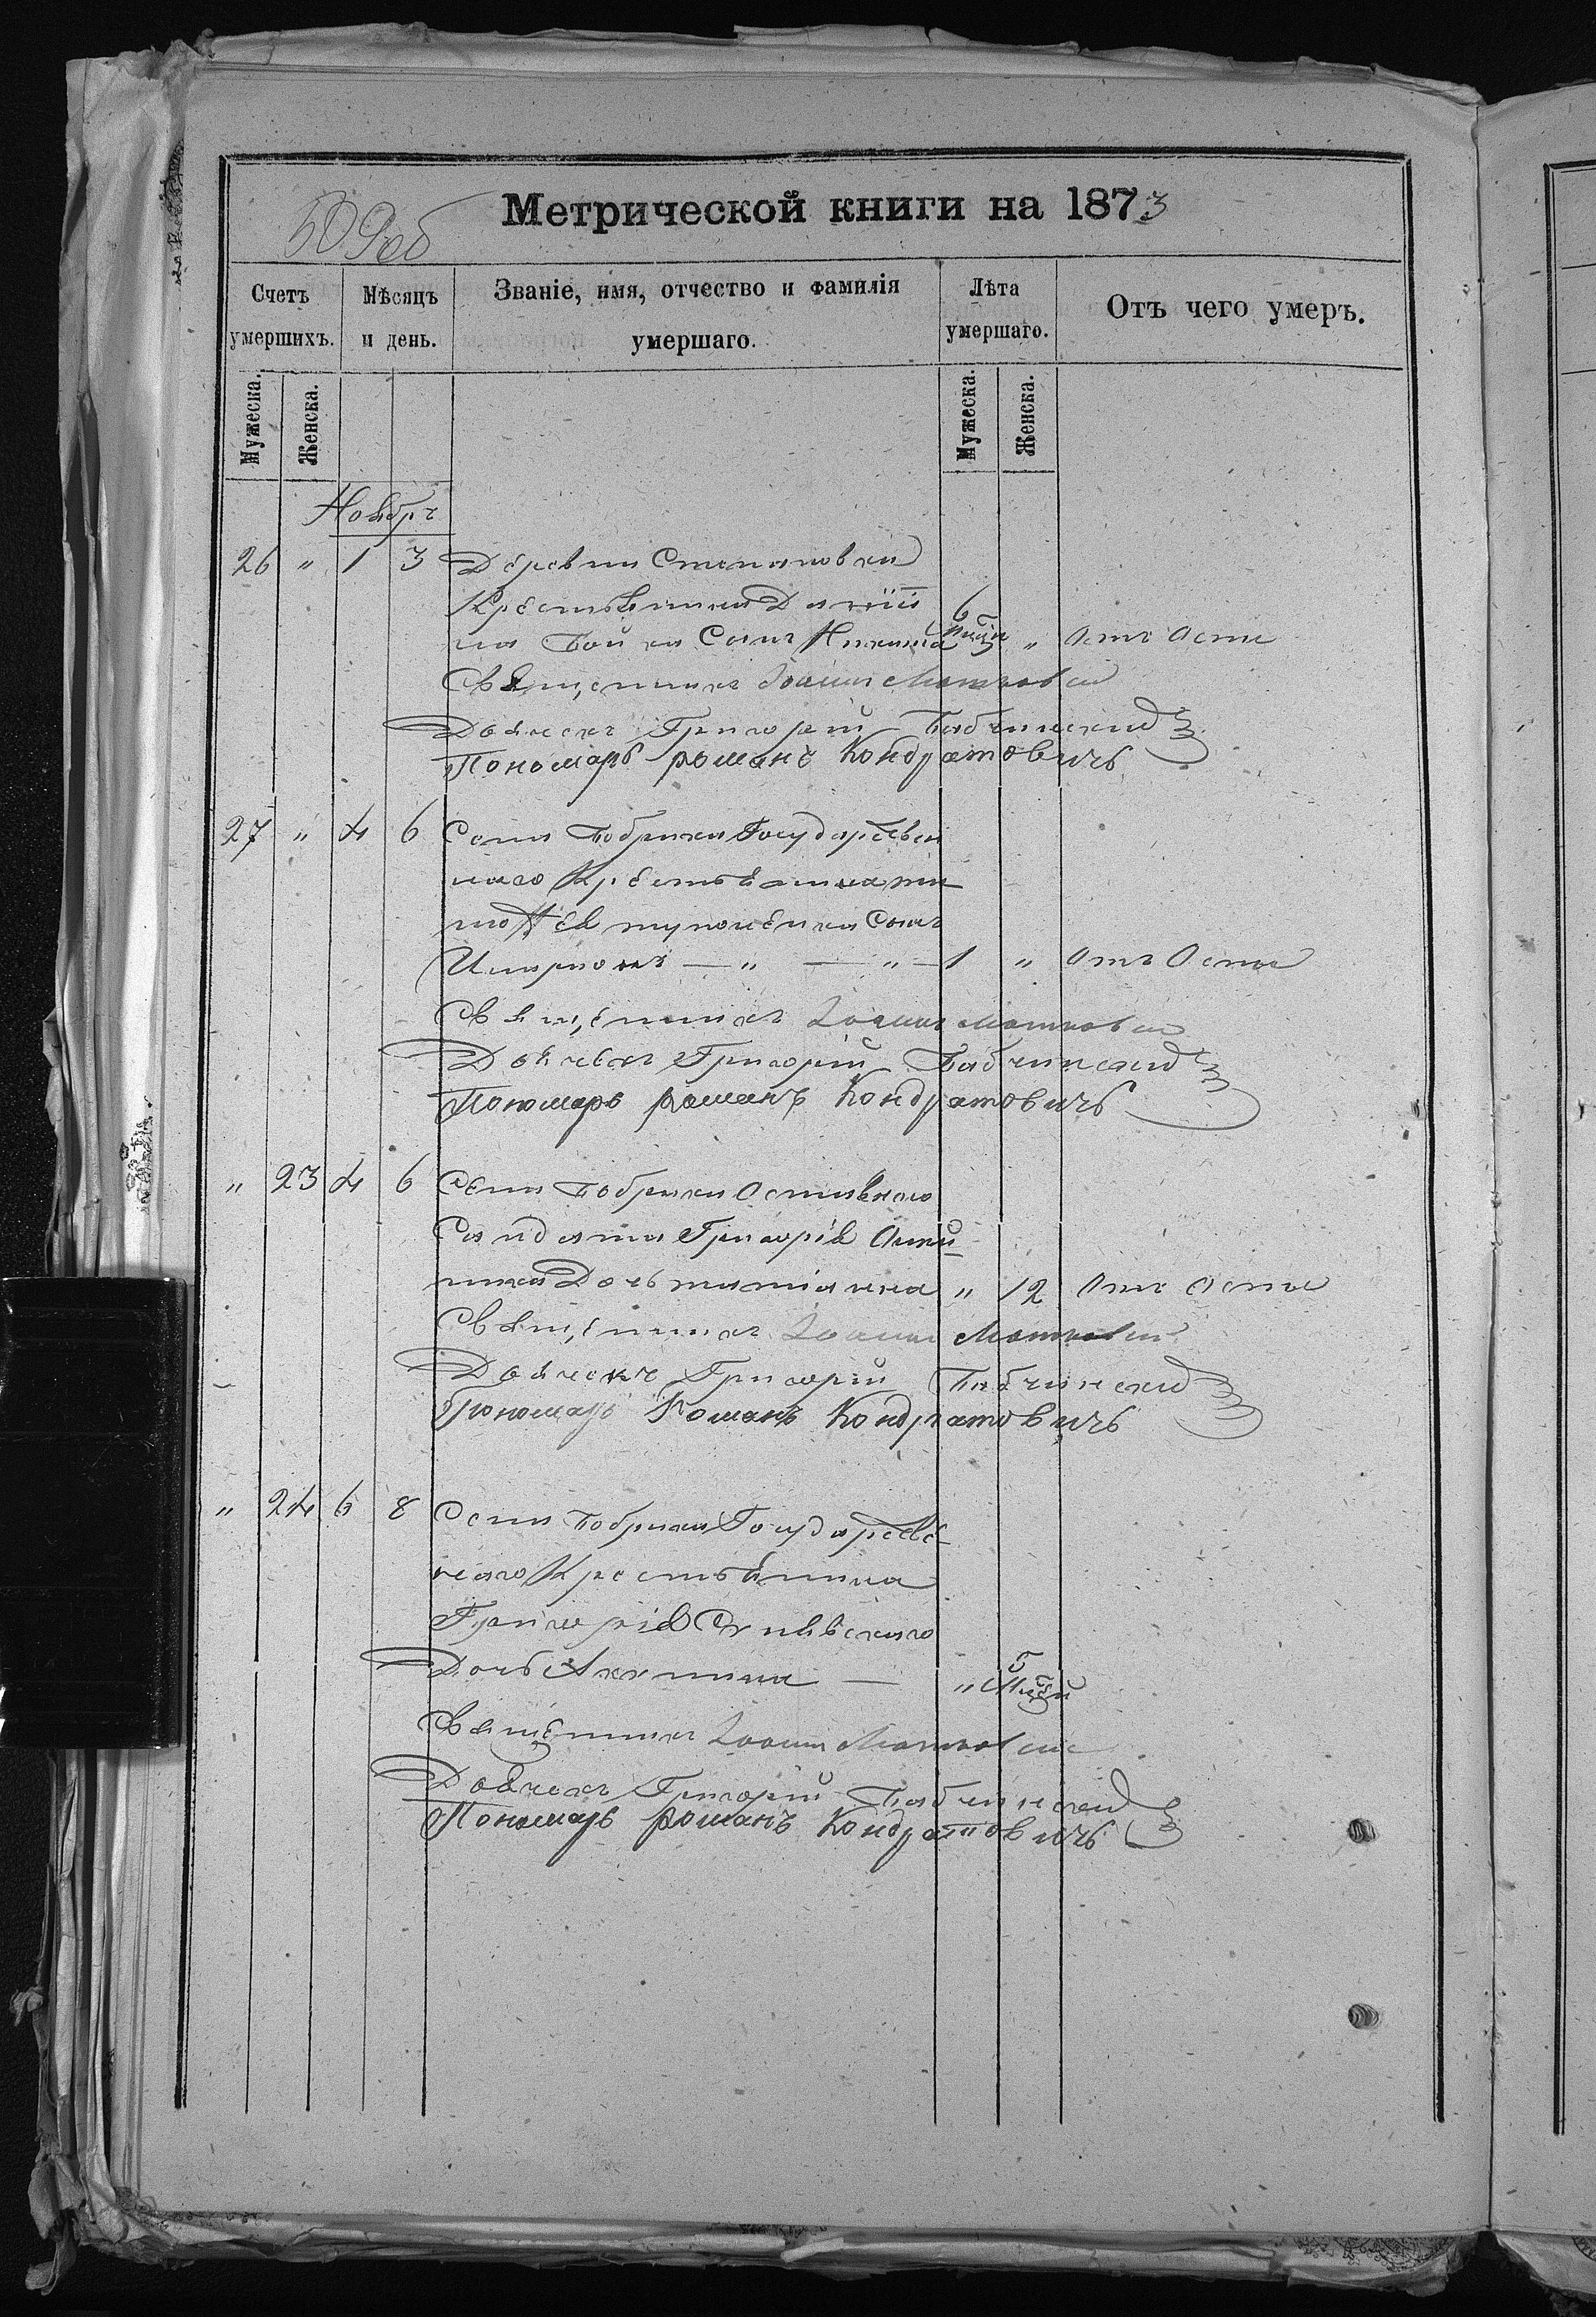 Метрической книги на 1873
509 об
Счетъ умершихъ.
Мѣсяцъ и день.
Званіе, имя, отчество и фамилія умершаго.
Лѣта умершаго.
Отъ чего умеръ.
Мужеска.
Женска.
Мужеска.
Женска.
Ноябрь
26 " 1 3 Деревни Степановки
Крестьянина Даніи
ла Бойка Сынъ Никита 6 " Отъ Оспы
Священникъ Іоаннъ
Дьячекъ Григорій Бабчинскій
Пономарь романъ Кондратовичъ
27 " 4 6 Села Бобрика Государствен
наго Крестьянина
Сынъ
Иларіонъ — " — " — 1 " Отъ Оспы
Священникъ Іоаннъ
Дьячекъ Григорій Бабчинскій
Пономарь романъ Кондратовичъ
" 23 4 6 Села Бобрика
Солдата Григорія
Дочь татіяна " 12 Отъ Оспы
Священникъ Іоаннъ
Дьячекъ Григорій Бабчинскій
Пономарь Романъ Кондратовичъ
" 24 6 8 Села Бобрика Государстве
ннаго Крестьянина
Григорія
Дочь Акилина — " 5
Священникъ Іоаннъ
Дьячекъ Григорій Бабчинскій
Пономарь романъ Кондратовичъ